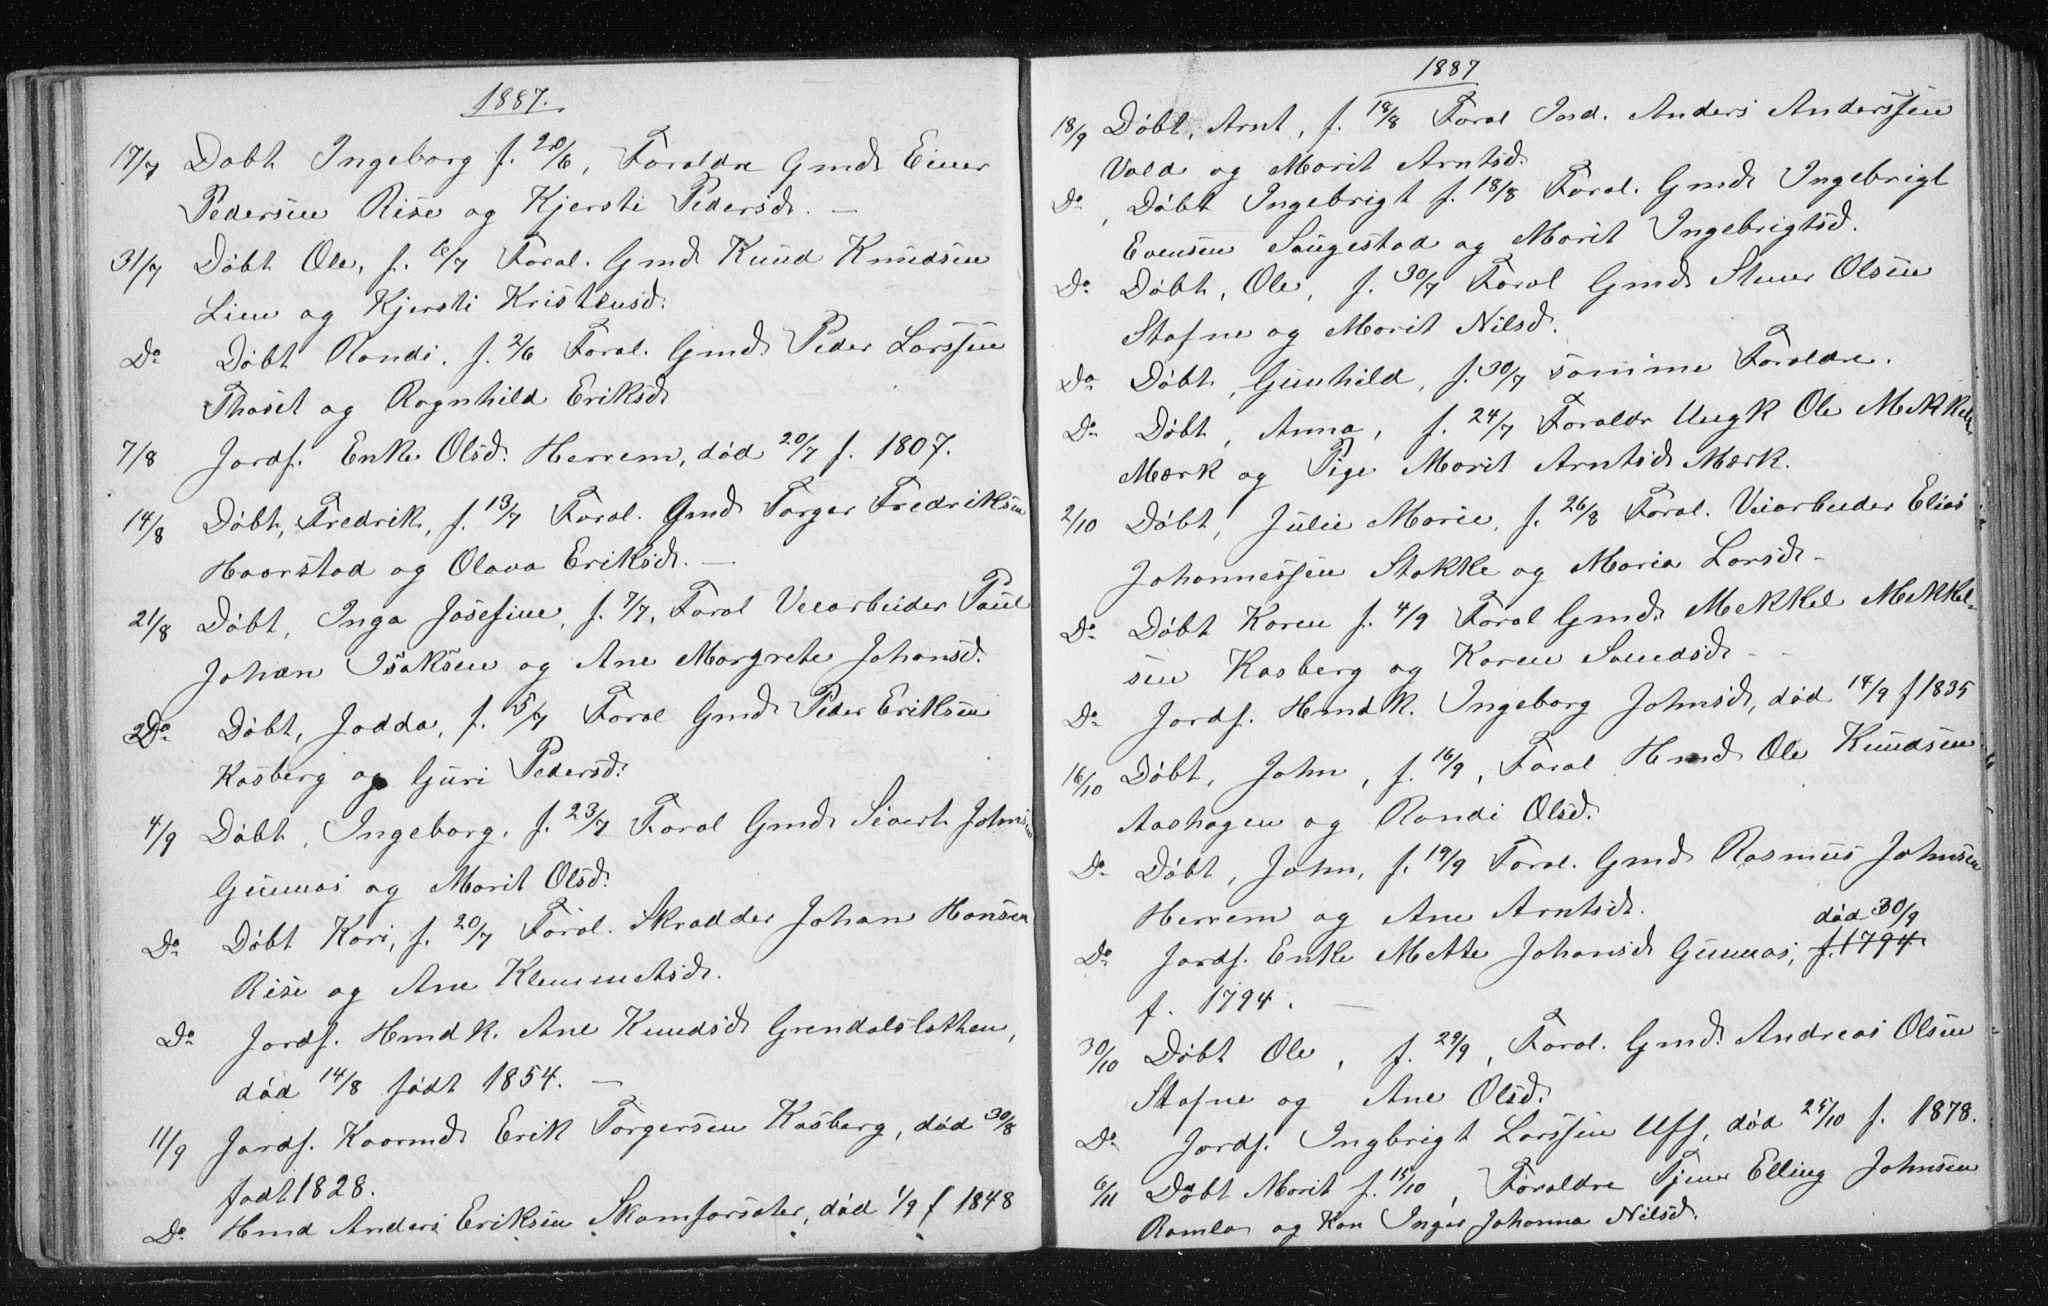 1887.
17/7 Døbt Ingeborg f. 20/6, Forældre Gmd Einer
Pedersen Rise og Kjersti Pedersd. —
31/7 Døbt Ole, f. /7 Foræl. Gmd Knud Knudsen
Lien og Kjersti Kristensd.
Do Døbt Randi, f. 2/6 Foræl. Gmd. Peder Larssen
Thaset og Ragnhild Eriksd
7/8 Jordf. Enke Olsd. Herrem, død 20/7 f. 1807.
14/8 Døbt, Fredrik, f. 13/7 Foræl. Gmd Torger Fredriksen
Haarstad og Olava Eriksd. —
21/8 Døbt, Inga Josefine, f. 7/7, Foræl Veiarbeider Paul
Johan Isaksen og Ane Margrete Johansd.
Do Døbt, Jodda, f. 5/7 Foræl Gmd Peder Eriksen
Kasberg og Guri Pedersd.
4/9 Døbt, Ingeborg, f. 23/7 Foræl Gmd Sivert Johnsen
Gunnæs og Marit Olsd.
Do Døbt Kari, f. 20/7 Foræl. Skrædder Johan Hansen
Rise og Ane Klemmetsd.
Do Jordf. Hmdk. Ane Knudsd Grendalsløkken,
død 14/8 født 1854. —
11/9 Jordf. Kaarmd Erik Torgersen Kasberg, død 30/8
født 1828.
Do Hmd Anders Eriksen Skamfarsæter, død 1/9 f 1848
1887
18/9 Døbt, Arnt, f. 18/8 Foræl Ind. Anders Anderssen
Vold og Marit Arntsd.
Do, Døbt Ingebrigt f. 18/8 Foræl. Gmd Ingebrigt
Evensen Saugestad og Marit Ingebrigtsd.
Do Døbt, Ole, f. 30/7 Foræl Gmd Stener Olsen
Stafne og Marit Nilsd.
Do Døbt, Gunhild, f. 30/7 samme Forældre.
Do Døbt, Anna, f. 24/7 Forældr Ungk Ole Mekkelsen
Mærk og Pige Marit Arntsd Mærk.
2/10 Døbt, Julie Marie, f. 26/8 Foræl. Veiarbeider Elias
Johannessen Stokke og Maria Larsd —
Do Døbt Karen f. 4/9 Foræl Gmd. Mekkel Mekkel-
sen Kasberg og Karen Amundsd —
Do Jordf. Hmdk. Ingeborg Johnsd, død 14/9 f 1835
16/10 Døbt, John, f. 16/9, Foræl Hmd Ole Knudsen
Aashagen og Randi Olsd.
Do Døbt, John, f. 19/9 Foræl. Gmd Rasmus Johnsen
Herrem og Ane Arntsd.
død 30/9
Do Jordf. Enke Mette Johansd Gunnæs, f. 1794
f. 1794. —
30/10 Døbt Ole, f. 29/9, Foræl. Gmd. Andreas Olsen
Stafne og Ane Olsd.
Do Jordf. Ingbrigt Larssen Uff, død 25/10 f. 1878.
6/11 Døbt Marit f. 15/10, Forældre Tjener Elling Johnsen
Ramlo og Kon Inger Johanna Nilsd.